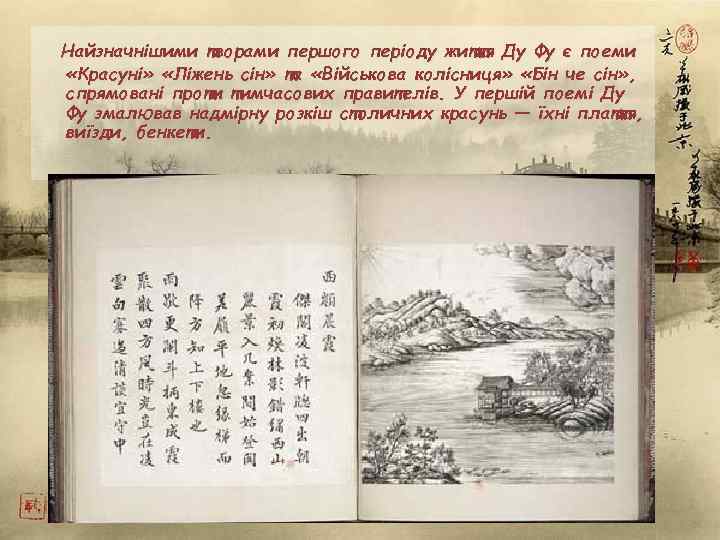 Найзначнішими творами першого періоду життя Ду Фу є поеми
«Красуні» «Ліжень сін» та «Військова колісниця» «Бін че сін»,
спрямовані проти тимчасових правителів. У першій поемі Ду
Фу змалював надмірну розкіш столичних красунь — їхні плаття,
виїзди, бенкети.
西嶺晨霞
傑閣凌波軒牕四出朝
霞初煥林影錯繡西山
麗景入几案間始登閣
若履平地忽緣梯而
降方知上下樓也
雨歇更闌斗柄東成霞
聚散四方風時光豈在凌
雲句寡過清談宜守中